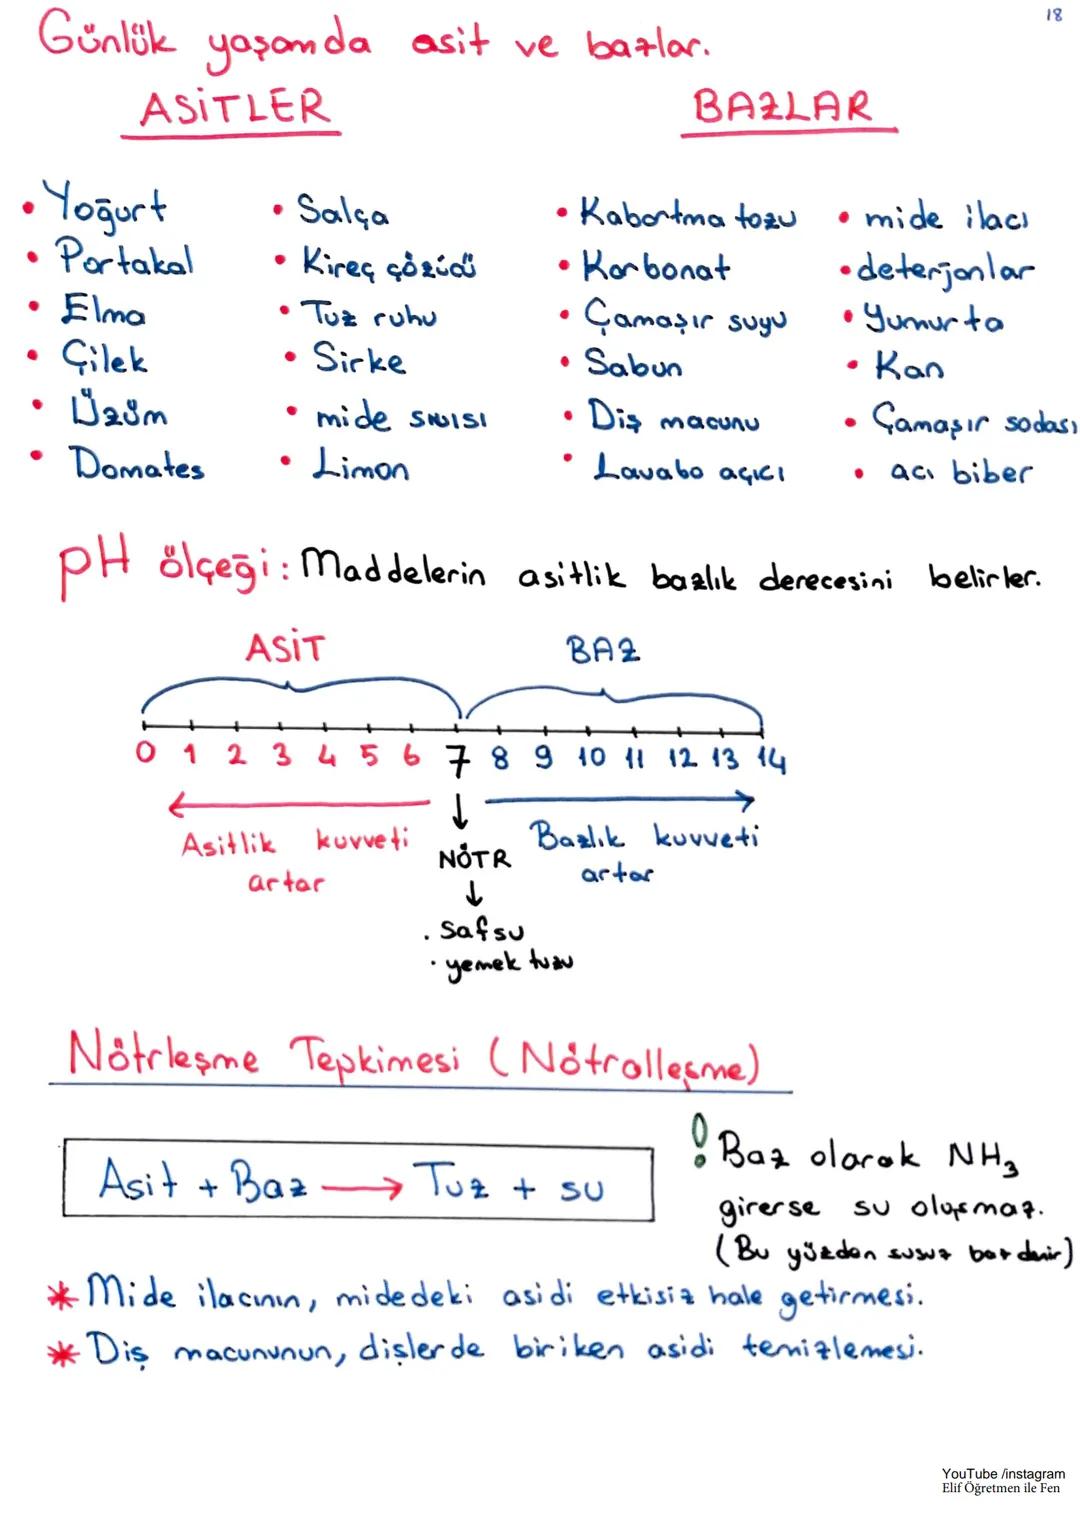 18
Günlük yaşamda asit ve bazlar.
ASİTLER
BAZLAR
• Yoğurt
• Portakal
• Elma
• Çilek
• Üzüm
• Domates
• Salça
• Kireç çözücü
• Tuz ruhu
• Sirke
• mide sıvısı
• Limon
• Kabartma tozu
• Karbonat
• Çamaşır suyu
• Sabun
• Diş macunu
• Lavabo açıcı
• mide ilacı
• deterjanlar
• Yumurta
• Kan
• Çamaşır sodası
• acı biber
pH ölçeği: Maddelerin asitlik bazlık derecesini belirler.
ASİT
BAZ
0 1 2 3 4 5 6 7 8 9 10 11 12 13 14
← ↓ →
Asitlik kuvveti
artar
NÖTR
Bazlık kuvveti
artar
↓
. Saf su
. yemek tuzu
Nötrleşme Tepkimesi (Nötralleşme)
Asit + Baz → Tuz + su
! Baz olarak NH₃
girerse su oluşmaz.
(Bu yüzden susuz baz denir)
* Mide ilacının, midedeki asidi etkisiz hale getirmesi.
* Diş macununun, dişlerde biriken asidi temizlemesi.
YouTube /instagram
Elif Öğretmen ile Fen